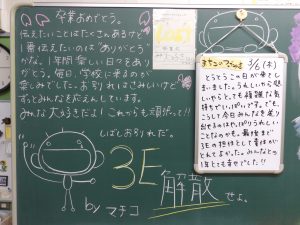 卒業おめでとう。
伝えたいことはたくさんあるけど
1番伝えたいのは"ありがとう"
かな。1年間楽しい日々をあり
がとう。毎日、学校に来るのが
楽しみでした。お別れはさみしいけど
ずっとみんなを応えんしています。
みんな大好きだよ！これからも頑張って!!
しばしお別れだ。
3E
解散
せよ。
by マチコ
3/6(木)
とうとうこの日が来てし
まいました。うれしいやら悲
しいやらとても複雑な気
持ちでいっぱいです。でも、
こうして今日みんなを送り
出せるのはやっぱりうれしい
ことなのかも。最後まで
3Eの担任として責任が
とれてよかった。みんなとの
1年とても幸せでした!!